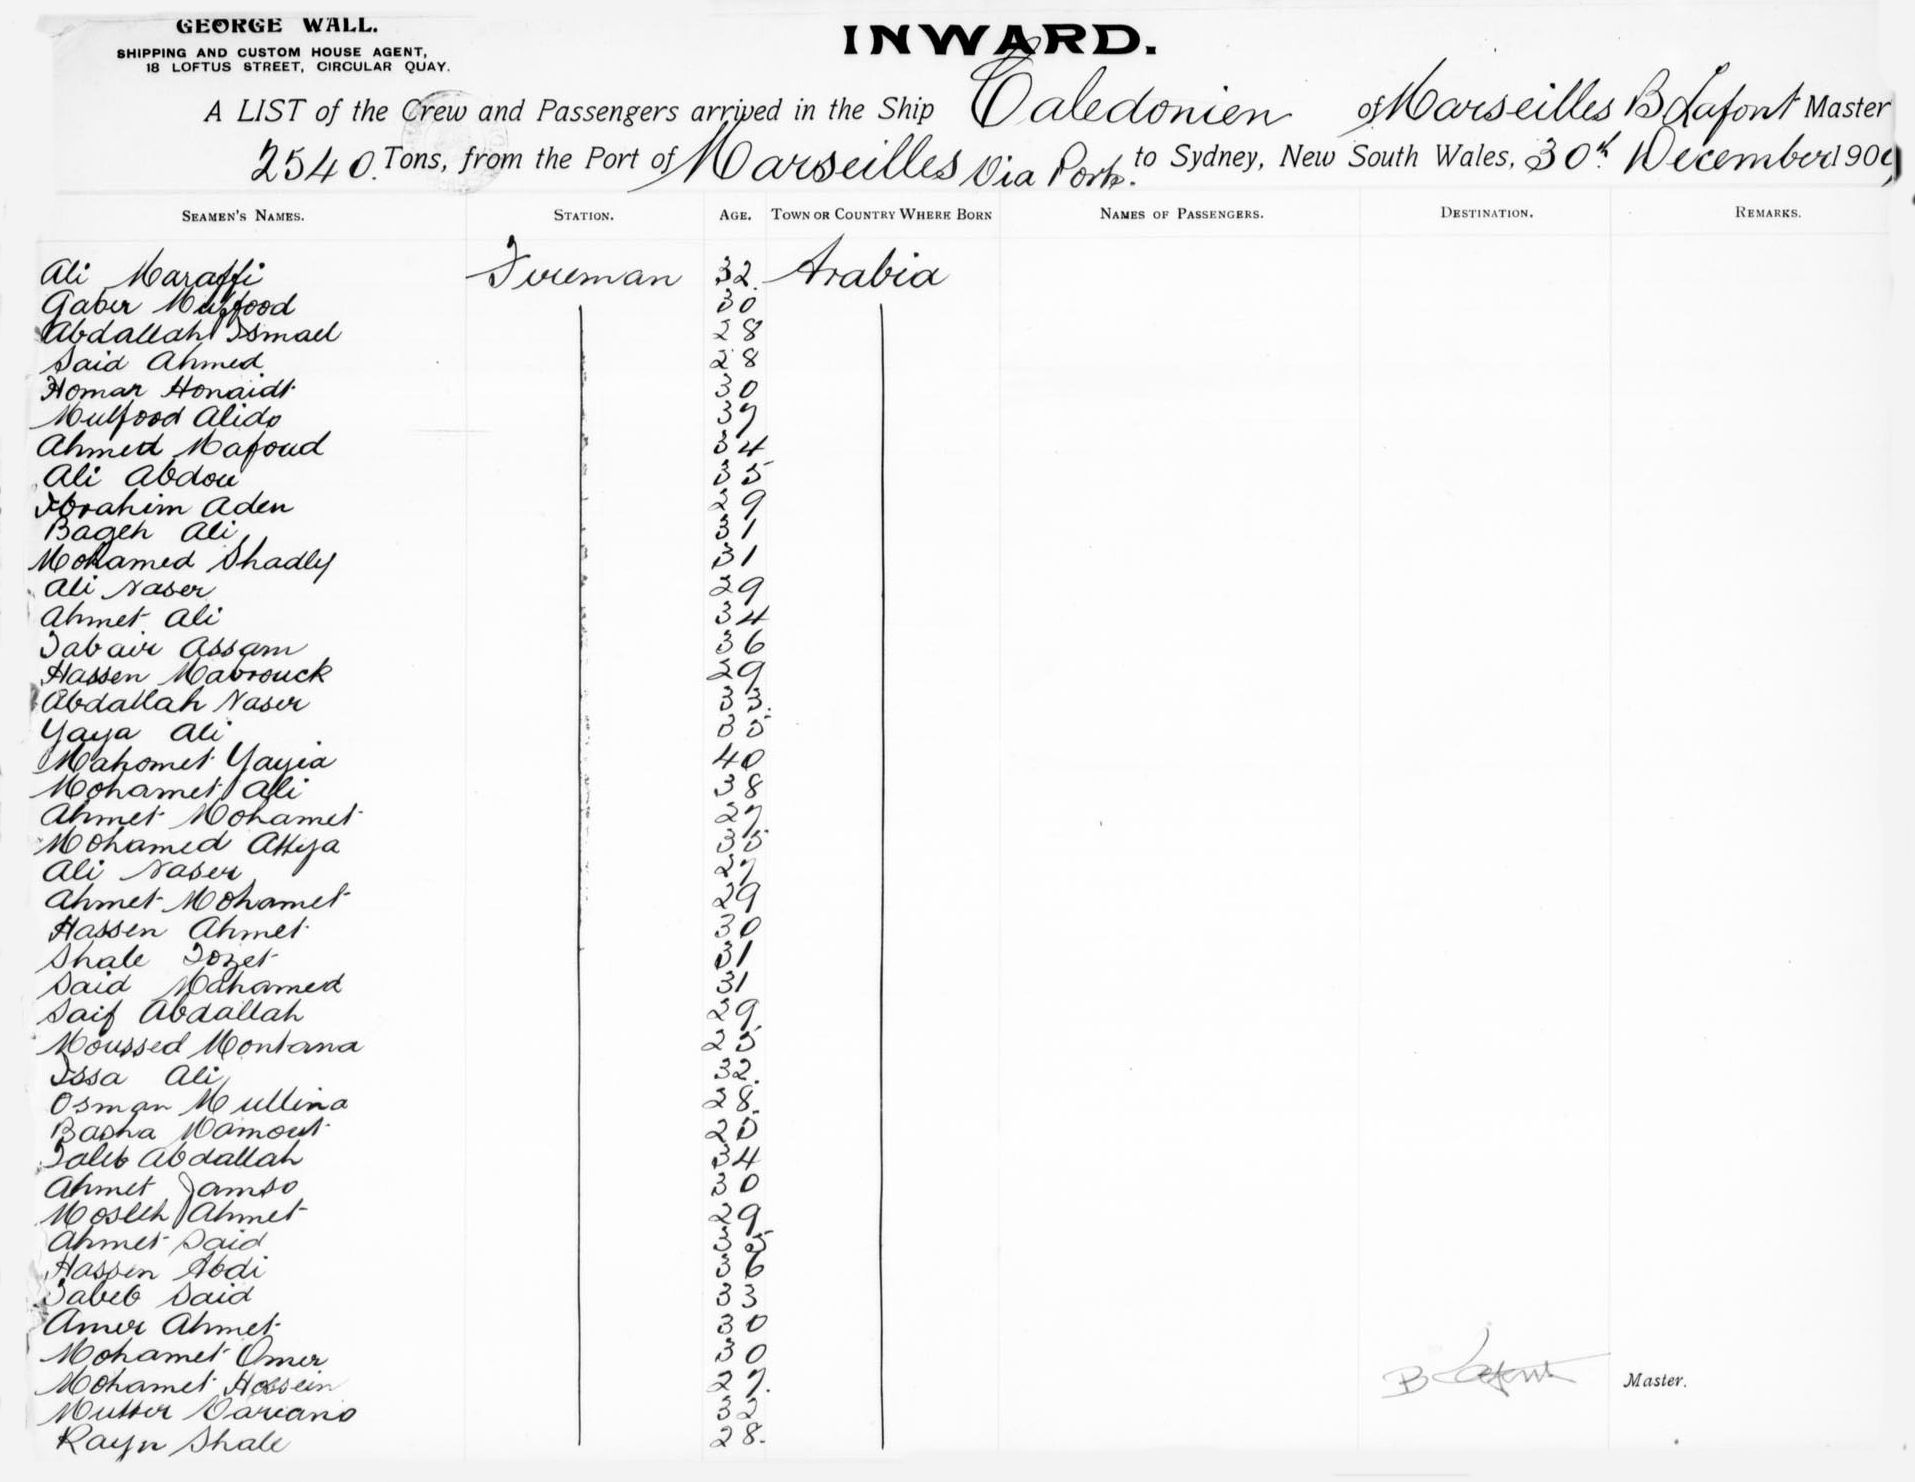 GEORGE WALL.
SHIPPING AND CUSTOM HOUSE AGENT,
18 LOFTUS STREET, CIRCULAR QUAY.
INWARD.
A LIST of the Crew and Passengers arrived in the Ship Caledonien of Marseilles B Lafont Master
2540. Tons, from the Port of Marseilles Via Ports. to Sydney, New South Wales, 30th December 1909
SEAMEN'S NAMES. STATION. AGE. TOWN OR COUNTRY WHERE BORN NAMES OF PASSENGERS. DESTINATION. REMARKS.
Ali Maraffi Fireman 32. Arabia
Gaber Mulfood 30
Abdallah Ismael 28
Said Ahmed 28
Homar Honaidt 30
Mulfood Alido 37
Ahmed Mafoud 34
Ali Abdou 35
Ibrahim Aden 29
Bageh Ali 31
Mohamed Shadly 31
Ali Naser 29
Ahmet Ali 34
Tabair Assam 36
Hassen Mabrouck 29
Abdallah Naser 33.
Yaya Ali 35
Mahomet Yayia 40
Mohamet Ali 38
Ahmet Mohamet 27
Mohamed Attya 35
Ali Naser 27
Ahmet Mohamet 29
Hassen Ahmet 30
Shale Tozet 31
Said Mohamed 31
Saif Abdallah 29
Moussed Montana 25
Issa Ali 32.
Osman Mullina 28.
Basha Mamout 25
Taleb Abdallah 34
Ahmet Jamso 30
Mosleh Ahmet 29
Ahmet Said 35
Hassen Abdi 36
Tabeb Said 33
Amer Ahmet 30
Mohamet Omer 30
Mohamet Hossein 27. B Lafont Master.
Mutter Mariano 32
Rayn Shale 28.